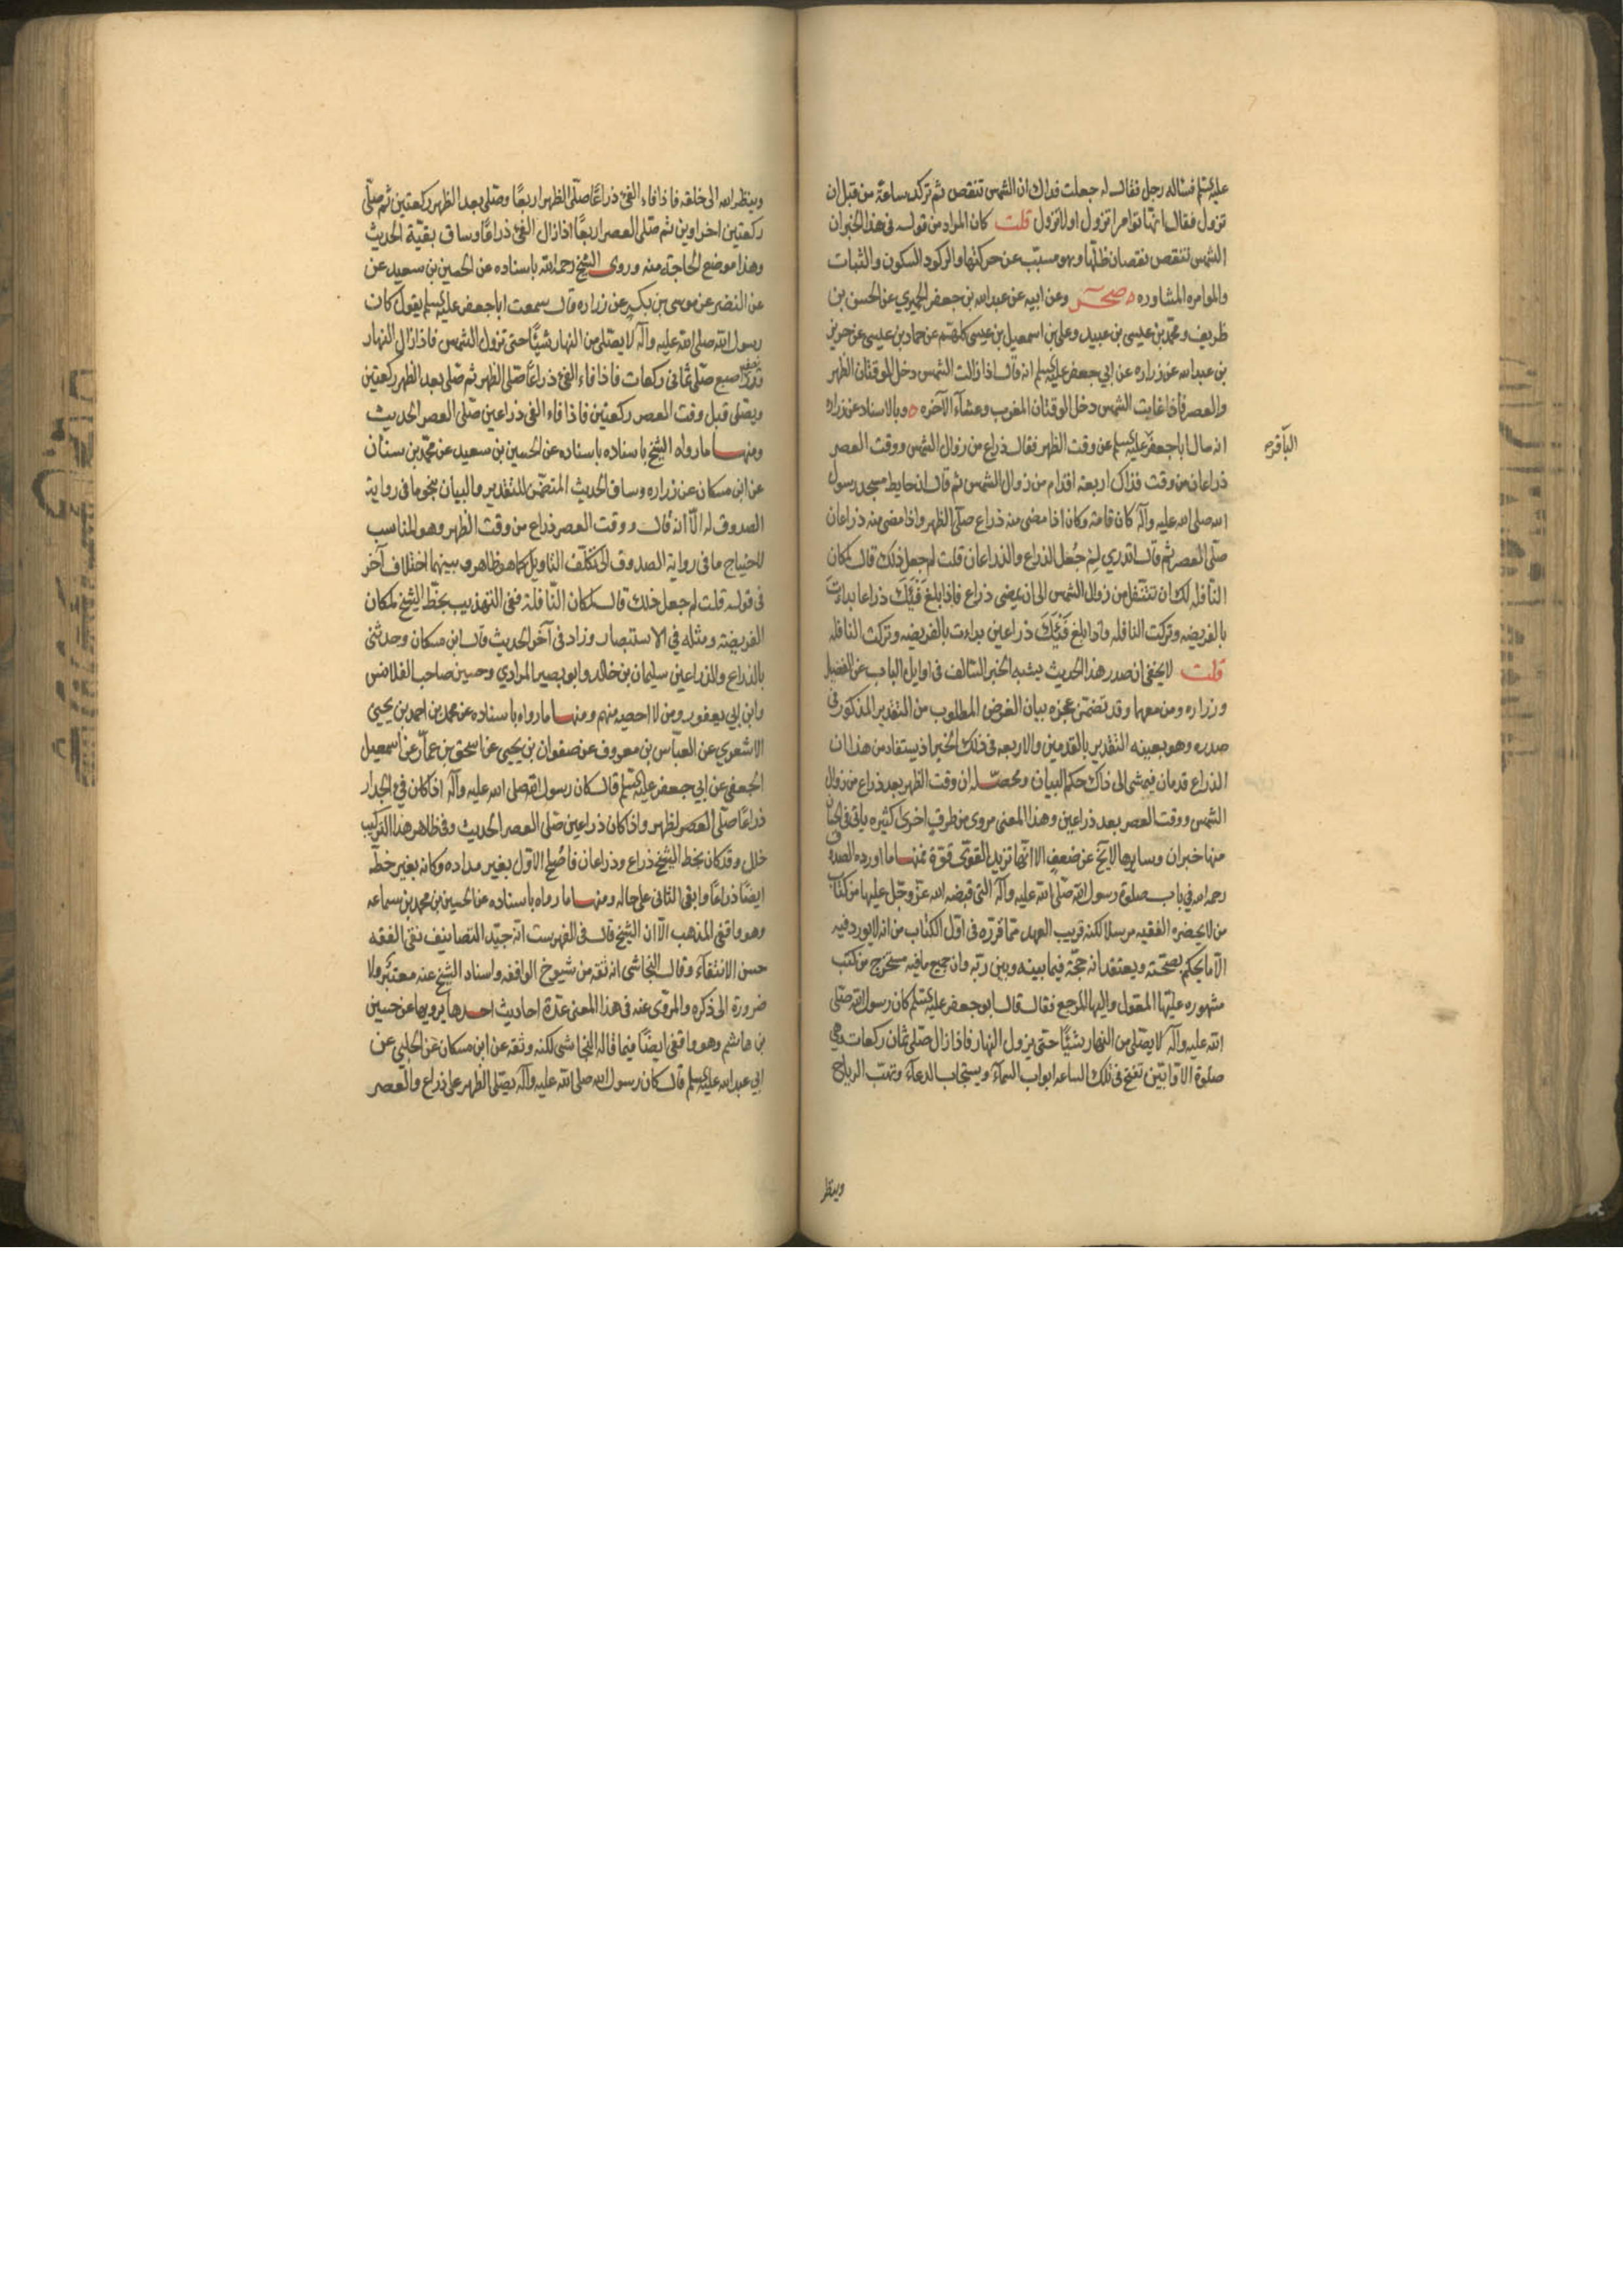 عليه السلم فساله رجل فقال له جعلت فداك ان الشمس تنقص ثم تركد ساعة من قبل ان
تزول فقال انها توامر اتزول او لا تزول قلت كان المراد من قوله في هذا الخبر ان
الشمس تنقص نقصان ظلها وهو مسبب عن حركتها والركود السكون والثبات
والموامره المشاوره ه صحر وعن ابيه عن عبدالله بن جعفر الحميري عن الحسن بن
ظريف ومحمد بن عيسى بن عبيد وعلي بن اسمعيل بن عيسى كلهم عن حماد بن عيسى عن حريز
بن عبدالله عن زراره عن ابي جعفر عليه السلم انه قال اذا زالت الشمس دخل الوقتان الظهر
والعصر فاذا غابت الشمس دخل الوقتان المغرب وعشآء الآخره ه وبالاسناد عن زراره
انه سال ابا جعفر عليه السلم عن وقت الظهر فقال ذراع من زوال الشمس ووقت العصر
الباقره
ذراعان من وقت فذاك اربعة اقدام من زوال الشمس ثم قال ان حايط مسجد رسول
الله صلى الله عليه وآله كان قامة وكان اذا مضى منه ذراع صلى الظهر واذا مضى منه ذراعان
صلى العصر ثم قال اتدري لِمَ جُعل الذراع والذراعان قلت لم جعل ذلك قال لمكان
النافله لك ان تتنفل من زوال الشمس الى ان يمضى ذراع فاذا بلغ فَيْئُكَ ذراعا بداءت
بالفريضه وتركت النافله واذا بلغ فَيْئُكَ ذراعين بداءت بالفريضه وتركت النافله
قلت لا يخفى ان صدر هذا الحديث يشبه الخبر السالف في اوايل الباب عن الفضيل
وزراره ومن معهما وقد تضمن عجزه بيان الغرض المطلوب من التقدير المذكور في
صدره وهو بعينه التقدير بالقدمين والاربعه في ذلك الخبر اذ يستفاد من هذا ان
الذراع قدمان فيمشى الى ذاك حكم البيان ومحصله ان وقت الظهر بعد ذراع من زوال
الشمس ووقت العصر بعد ذراعين وهذا المعنى مروى من طرق اخرى كثيره ياتي في الحسان
منها خبران وسايرها لا يخ عن ضعف الا انها تزيد القوى قوة فمنها ما اورده الصدوق
رحمه الله في باب صلوة رسول الله صلى الله عليه وآله التي قبضه الله عز وجل عليها من كتاب
من لا يحضره الفقيه مرسلا لكنه قريب العهد مما قرره في اول الكتاب من انه لا يورد فيه
الا ما يحكم بصحته ويعتقد انه حجة فيما بينه وبين ربه وان جميع ما فيه مستخرج من كتب
مشهوره عليها المعول واليها المرجع فقال قال ابو جعفر عليه السلم كان رسول الله صلى
الله عليه وآله لا يصلي من النهار شيئا حتى يزول النهار فاذا زال صلى ثمان ركعات وهي
صلوة الاوابين تفتح في تلك الساعه ابواب السمآء ويستجاب الدعآء وتهب الرياح
وينظر
وينظر الله الى خلقه فاذا فاء الفئ ذراعًا صلى الظهر اربعًا وصلى بعد الظهر ركعتين ثم صلى
ركعتين اخراوين ثم صلى العصر اربعًا اذا زال الفئ ذراعًا وساق بقية الحديث
وهذا موضع الحاجة منه وروى الشيخ رحمه الله باسناده عن الحسين بن سعيد عن
عن النضر عن موسى بن بكر عن زراره قال سمعت ابا جعفر عليه السلم يقول كان
رسول الله صلى الله عليه وآله لا يصلي من النهار شيئًا حتى تزول الشمس فاذا زال النهار
قدر نصف اصبع صلى ثماني ركعات فاذا فاء الفئ ذراعًا صلى الظهر ثم صلى بعد الظهر ركعتين
ويصلى قبل وقت العصر ركعتين فاذا فاء الفئ ذراعين صلى العصر الحديث
ومنها ما رواه الشيخ باسناده باسناده عن الحسين بن سعيد عن محمد بن سنان
عن ابن مسكان عن زراره وساق الحديث المتضمن للتقدير والبيان بنحو ما في رواية
الصدوق له الا انه قال ووقت العصر ذراع من وقت الظهر وهو المناسب
لاحتياج ما في رواية الصدوق الى تكلف التاويل كما هو ظاهر وبينهما اختلاف آخر
في قوله قلت لم جعل ذلك قال لمكان النافلة ففي التهذيب بخط الشيخ لمكان
الفريضة ومثله في الاستبصار وزاد في آخر الحديث قال ابن مسكان وحدثنى
بالذراع والذراعين سليمان بن خالد وابو بصير المرادي وحسين صاحب القلانس
وابن ابي يعفور ومن لا احصيه منهم ومنها ما رواه باسناده عن محمد بن احمد بن يحيى
الاشعري عن العباس بن معروف عن صفوان بن يحيى عن اسحق بن عمار عن اسمعيل
الجعفى عن ابي جعفر عليه السلم قال كان رسول الله صلى الله عليه وآله اذا كان فئ الجدار
ذراعًا صلى العصر لظهر واذا كان ذراعين صلى العصر الحديث وفي ظاهر هذا التركيب
خلل وقد كان بخط الشيخ ذراع وذراعان فاصلح الاول بغير مداده وكانه بغير خطه
ايضًا ذراعًا وابقى الثاني على حاله ومنها ما رواه باسناده عن الحسين بن محمد بن سماعه
وهو واقفى المذهب الا ان الشيخ قال في الفهرست انه جيد التصانيف نقى الفقه
حسن الانتقآء وقال النجاشى انه ثقه من شيوخ الواقفه واسناد الشيخ عنه معتبر ولا
ضرورة الى ذكره والمروى عنه في هذا المعنى عدة احاديث احدها يرويها عن حسين
بن هاشم وهو واقفى ايضًا فيما قاله النجاشى لكنه وثقه عن ابن مسكان عن الحلبي عن
ابي عبدالله عليه السلم قال كان رسول الله صلى الله عليه وآله يصلى الظهر على ذراع والعصر